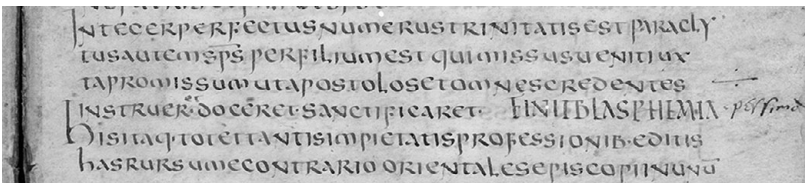 INTEGERPERFECTUSNUMERUSTRINITATISEST PARACLY
TUSAUTEMSP̄S̄ PERFILIUMEST QUIMISSUSUENITIUX
TAPROMISSUMUTAPOSTOLOSETOMNESCREDENTES
INSTRUERET·DOCERET·SANCTIFICARET· FINITBLASPHEMIA · pessima
hISITAQ·TOTETTANTISIMPIETATISPROFESSIONIB·EDITIS
hASRURSUMECONTRARIO ORIENTALESEPISCOPIINUNŪ